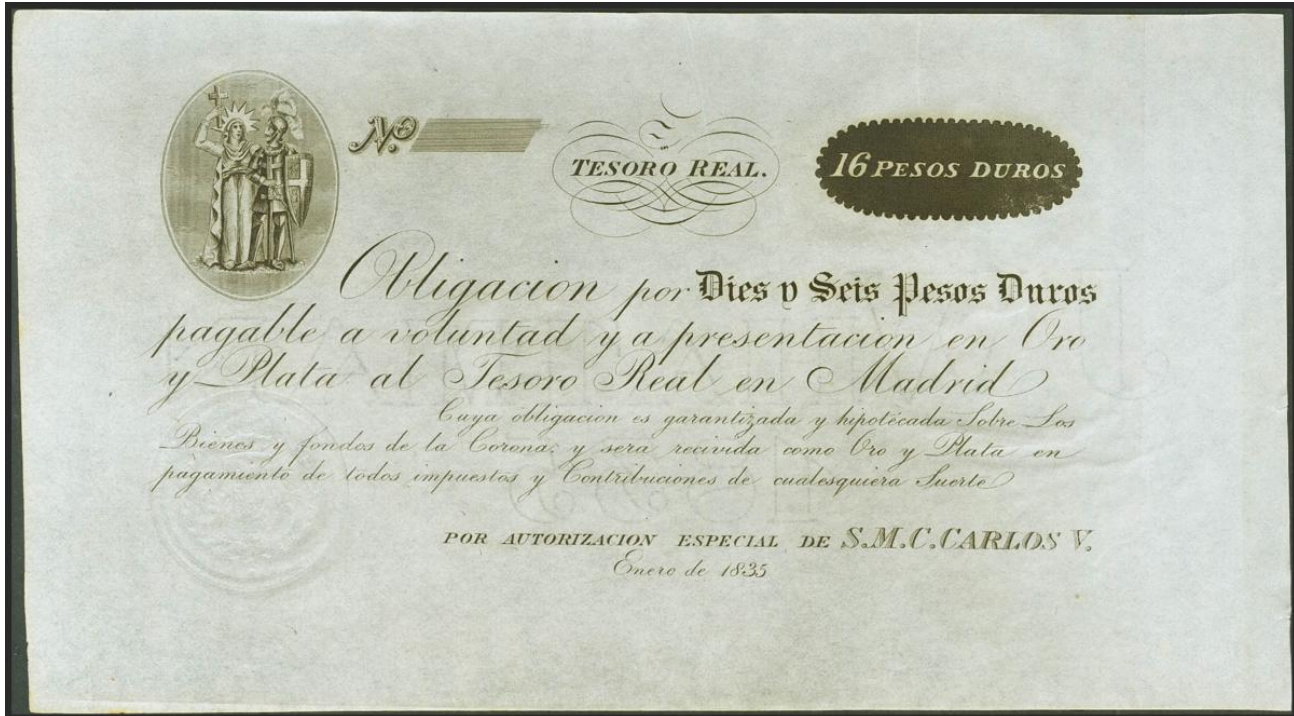 No.
TESORO REAL.
16 PESOS DUROS
Obligacion por Dies y Seis Pesos Duros
pagable a voluntad y a presentacion en Oro
y Plata al Tesoro Real en Madrid
Cuya obligacion es garantizada y hipotécada Sobre Los
Bienes y fondos de la Corona; y sera recivida como Oro y Plata en
pagamiento de todos impuestos y Contribuciones de cualesquiera Suerte
POR AUTORIZACION ESPECIAL DE S.M.C. CARLOS V.
Enero de 1835